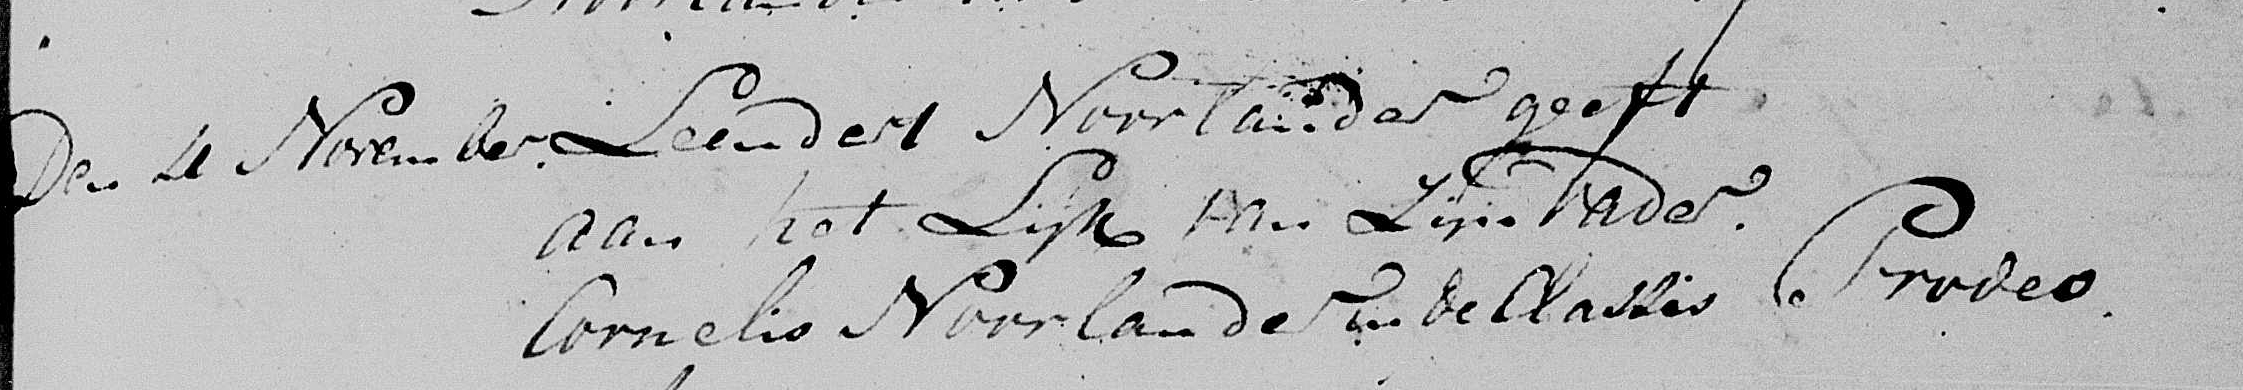 Den 4 November. Leendert Noorlander geeft
aan het Lijk van Zijn Vader.
Cornelis Noorlander in de Classis Prodeo.